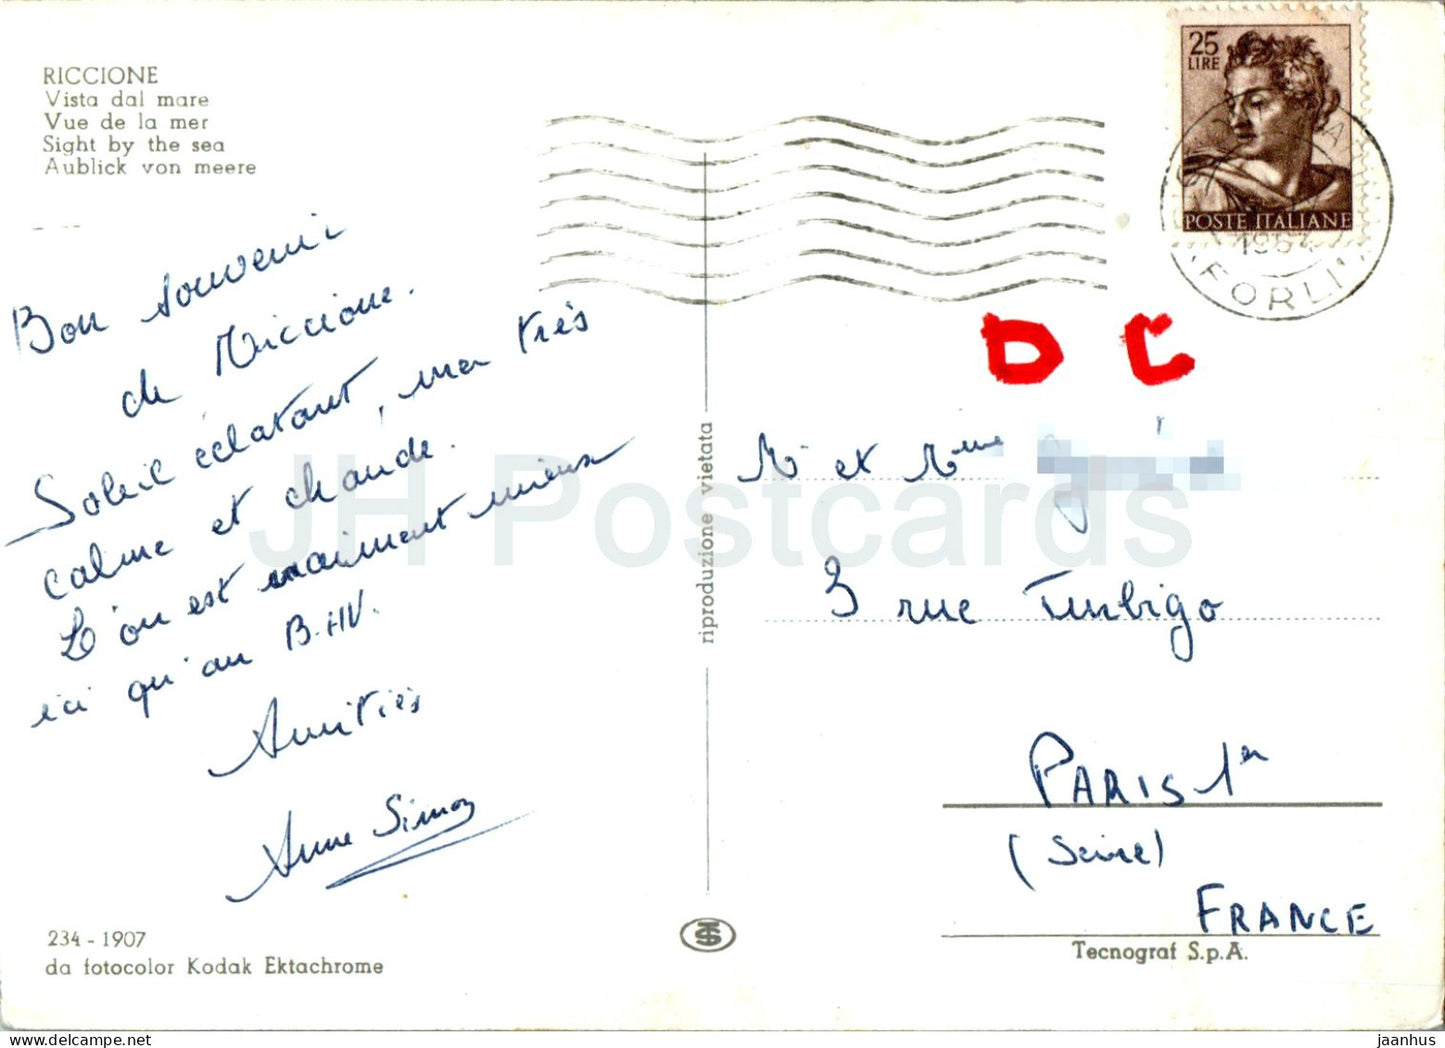 RICCIONE
Vista dal mare
Vue de la mer
Sight by the sea
Aublick von meere
Bon souvenir
de Riccione.
Soleil éclatant, mer très
calme et chaude.
L'on est vraiment mieux
ici qu'au B.HV.
Amitiés
Anne Simon
234 - 1907
da fotocolor Kodak Ektachrome
riproduzione vietata
25
LIRE
POSTE ITALIANE
1964
FORLI'
D C
Mr et Mme
3 rue Turbigo
PARIS 1er
(Seine)
FRANCE
Tecnograf S.p.A.
JH Postcards
jaanhus
delcampe.net